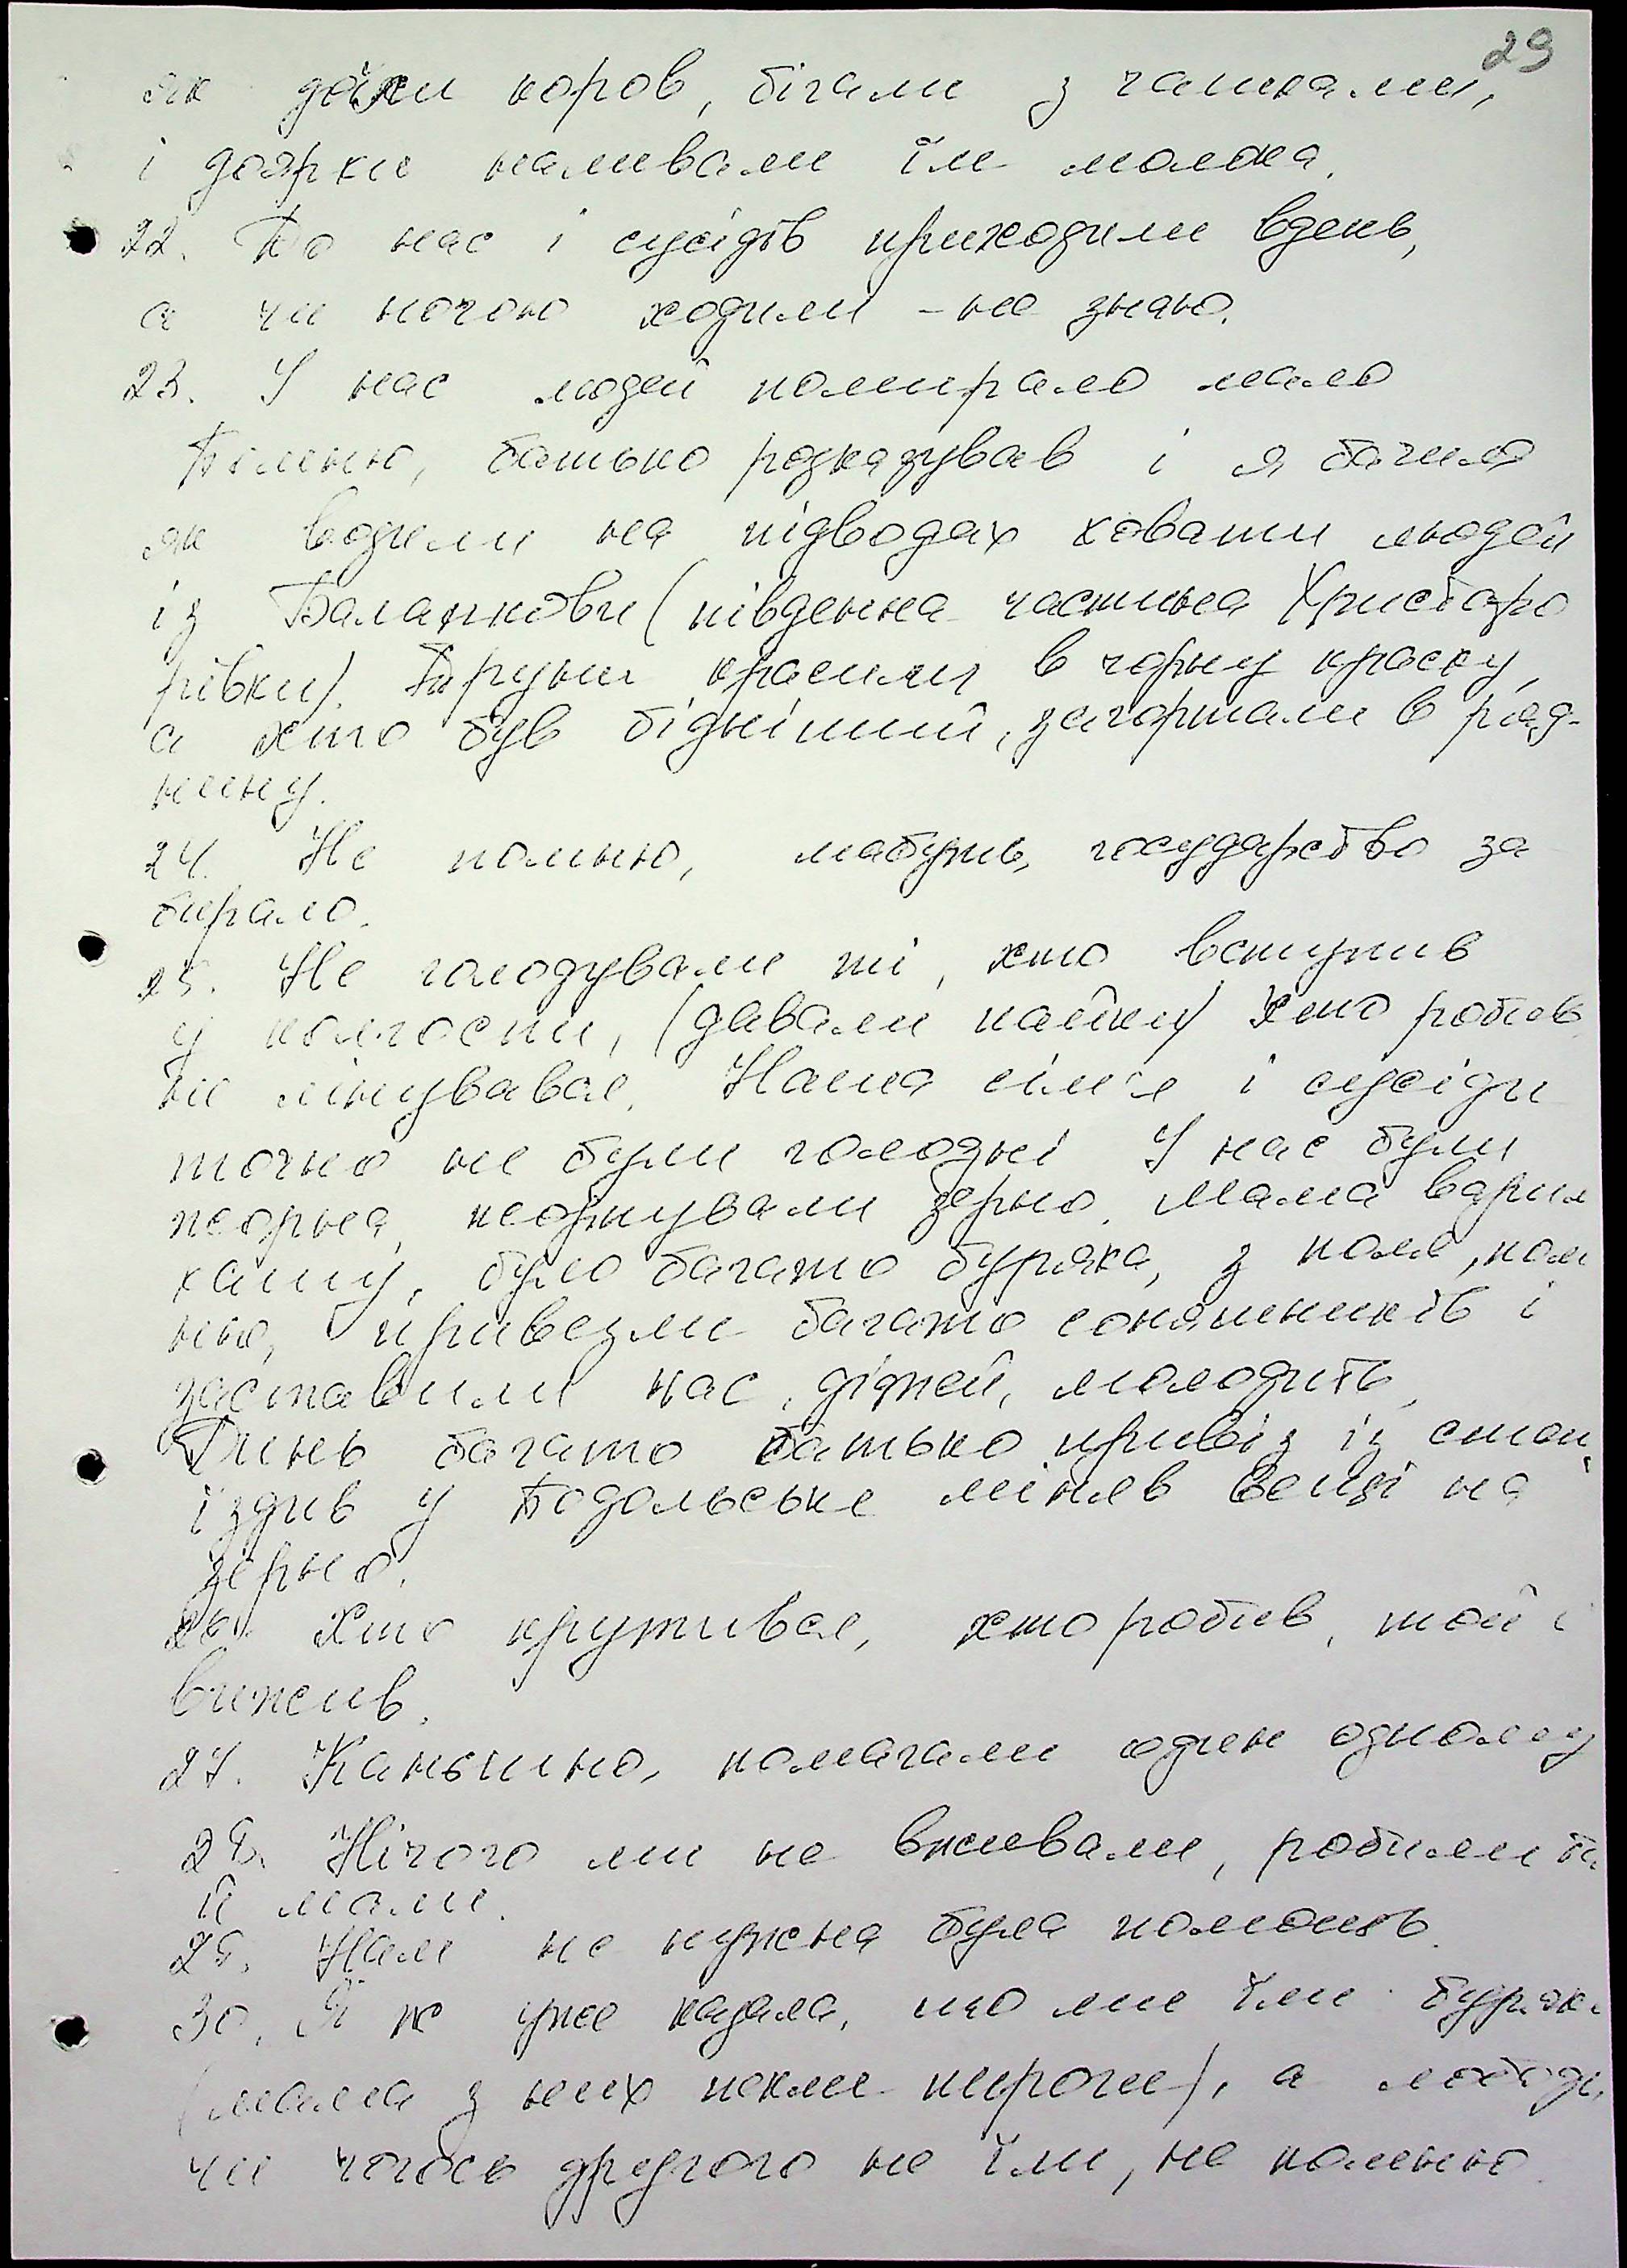 29
як доїли коров, бігали з чашками,
і доярки наливали їм молока.
22. До нас і сусідів приходили вдень,
а чи ночою ходили – не знаю.
23. У нас людей помирало мало
Помню, батько розказував і я бачила
як возили на підводах ховати людей
із (південна частина Христофо
рівки). Труни красили в чорну краску,
а хто був бідніший, загортали в ряд-
нину.
24. Не помню, мабуть, государство за
бирало.
25. Не голодували ті, хто вступив
у колгоспи, (давали пайки) Хто робив
не лінувався. Наша сім'я і сусіди
точно не були голодні У нас були
жорна, жорнували зерно. Мама варил
кашу, було багато буряка, з поля, пом
ню, привезли багато соняшників і
заставили нас, дітей, молотить.
Динь багато батько привіз із степ
їздив у Подольське міняв вещі на
зерно.
26. Хто крутився, хто робив, той і
вижив.
27. Каньшино, помагали один одному
28. Нічого ми не вживали, робили
й мали.
29. Нам не нужна була помощь.
30. Я ж уже казала, що ми їли буряк
(мама з них пекли пироги), а лободи,
чи чогось другого не їли, не помню.